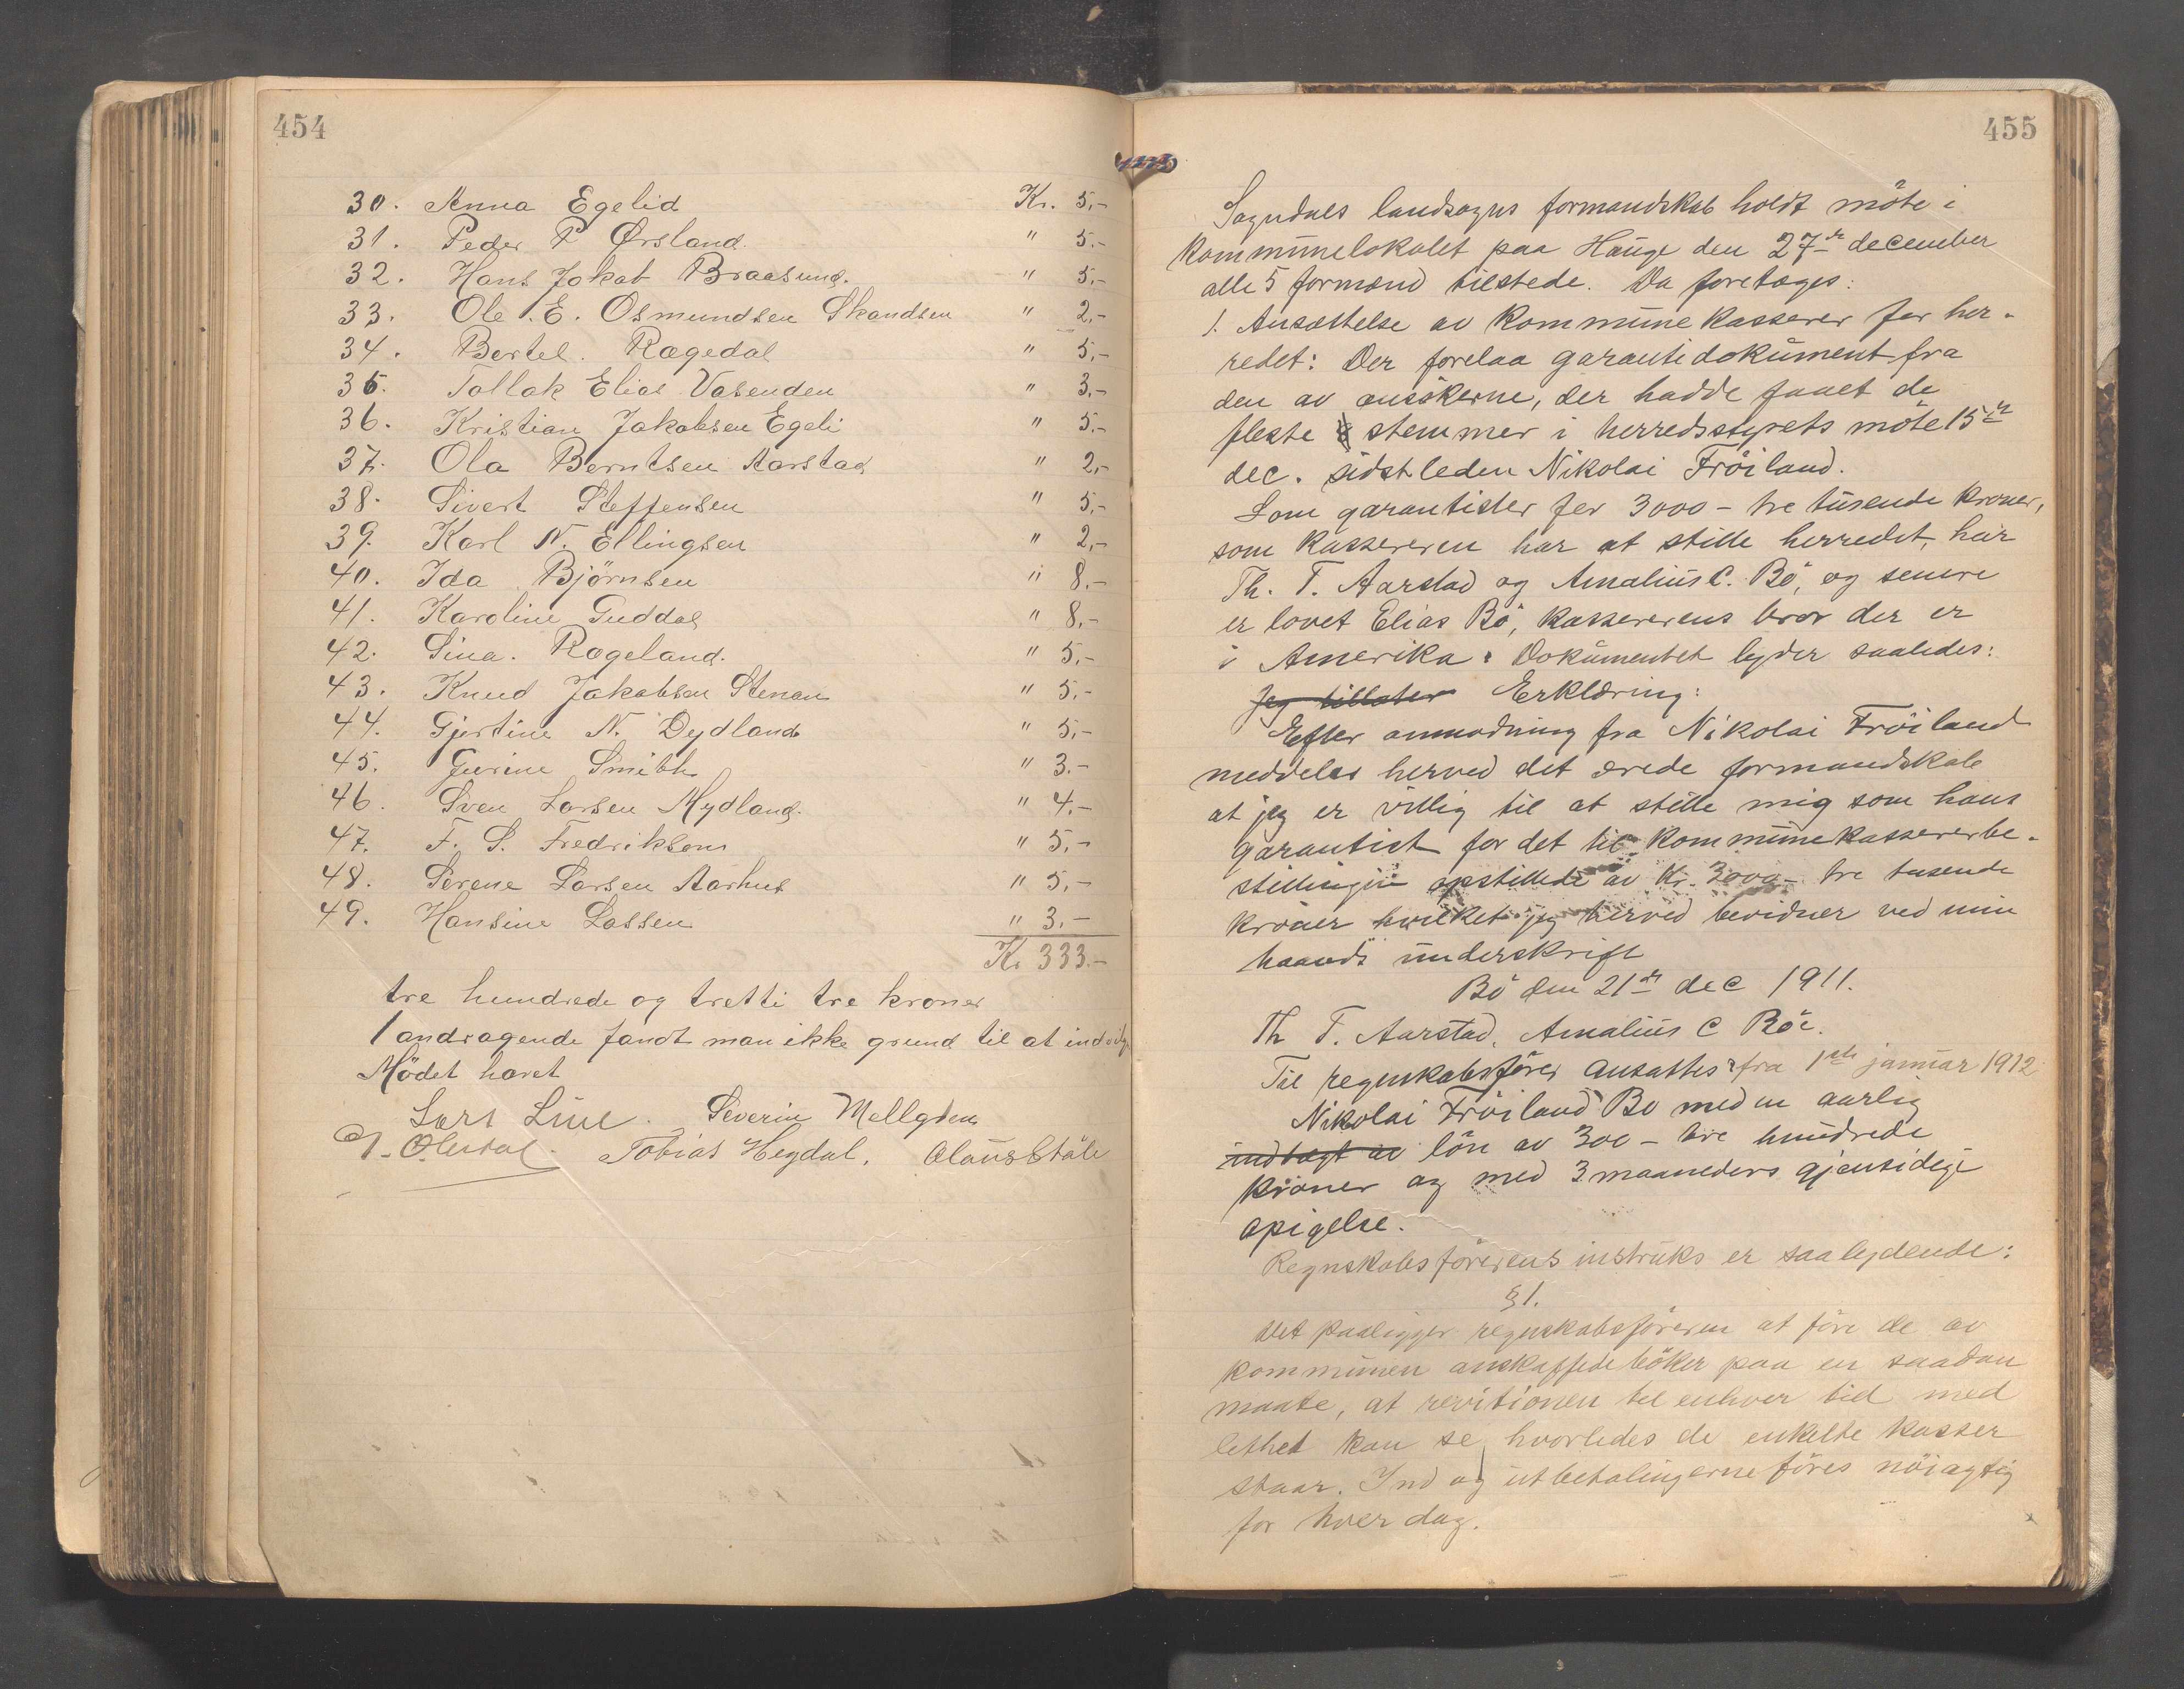 454
30. Anna Egelid Kr. 5,-
31. Peder P Ørsland. " 5.-
32. Hans Jokab Braasund. " 5,-
33. Ole E. Osmundsen Skandsen " 2,-
34. Bertel. Rægedal " 5,-
35. Tollak Elias Vasenden " 3,-
36. Kristian Jakobsen Egeli " 5,-
37. Ola Berntsen Aarstad " 2,-
38. Sivert Steffensen " 5,-
39. Karl N. Ellingsen " 2,-
40. Ida Bjørnsen " 8,-
41. Karoline Guddal " 8,-
42. Sina. Rægeland. " 5,-
43. Knud Jakobsen Stenan " 5,-
44. Gjertine N. Dydland " 5,-
45. Gurine Smith " 3.-
46. Sven Larsen Mydland. " 4,-
47. F. S. Fredriksen " 5,-
48. Serene Larsen Aarhus " 5,-
49. Hansine Lassen " 3,-
Kr 333.-
tre hundrede og tretti tre kroner
1 andragende fandt man ikke grund til at indvilge
Mödet hævet
Lars Line. Severin Mellgren
Olestad. Tobias Hegdal. Olaus Ståle
455
Sogndals landsogns formandskab holdt möte i
kommunelokalet paa Hauge den 27de december
alle 5 formænd tilstede. Da foretages:
1. Ansættelse av kommunekasserer for her-
redet: Der forelaa garantidokument fra
den av ansökerne, der hadde faaet de
fleste stemmer i herredsstyrets möte 15de
dec. sidstleden Nikolai Fröiland.
Som garantister for 3000 - tre tusende kroner,
som kassereren har at stille herredet, har
Th. T. Aarstad og Amalius C. Bö, og senere
er lovet Elias Bö, kassererens bror der er
i Amerika. Dokumentet lyder saaledes:
Jeg tillater Erklæring:
Efter anmodning fra Nikolai Fröiland
meddeles herved det ærede formandskab
at jeg er villig til at stille mig som hans
garantist for det til kommunekassererbe-
stillingen opstillede av Kr. 3000 - tre tusende
kroner hvilket jeg herved bevidner ved min
haands underskrift
Bö den 21de dec 1911.
Th T. Aarstad. Amalius C Böe.
Til regnskabsförer ansattes fra 1ste januar 1912
Nikolai Fröiland Bö med en aarlig
indtægt av lön av 300 - tre hundrede
kroner og med 3 maaneders gjensidige
opigelse.
Regnskabsförerens instruks er saalydende:
§ 1.
Det paaligger regnskabsföreren at före de av
kommunen anskaffede böker paa en saadan
maate, at revitionen til enhver tid med
lethet kan se, hvorledes de enkelte kasser
staar. Ind og utbetalingerne föres nöiagtig
for hver dag.